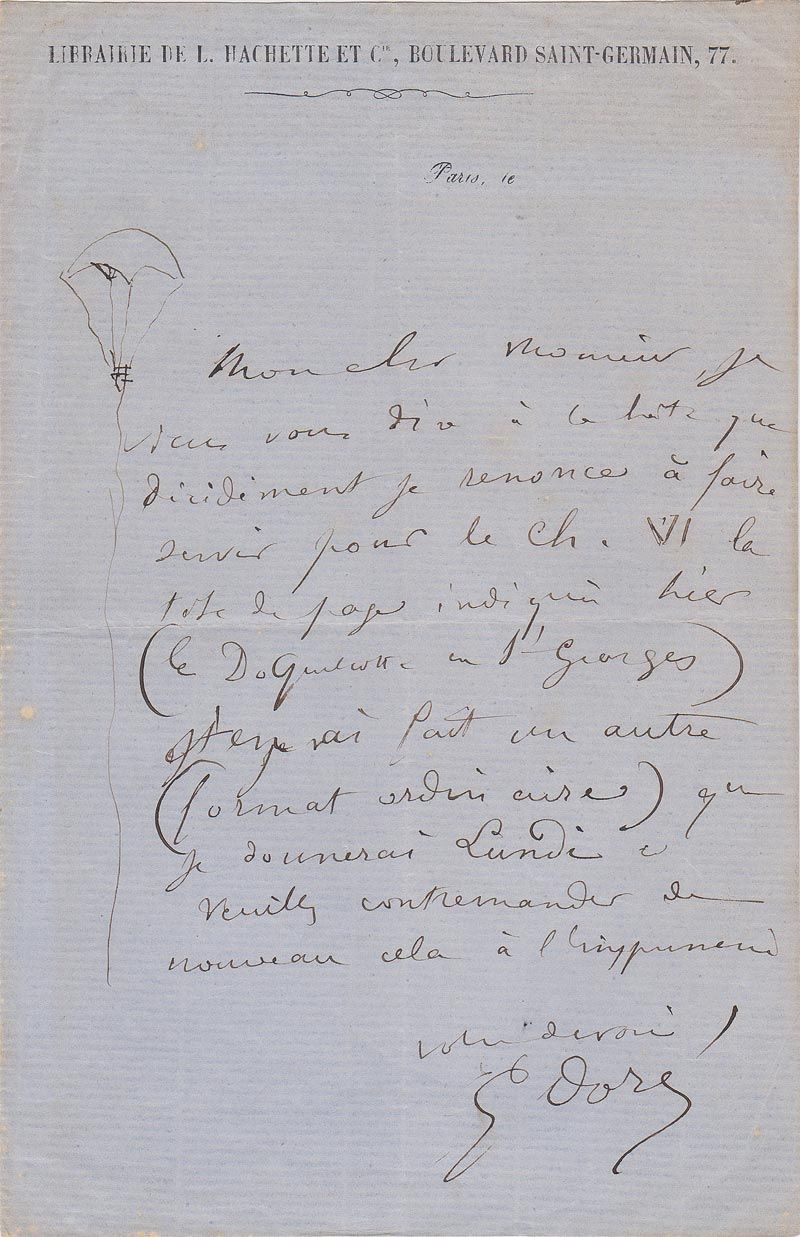 LIBRAIRIE DE L. HACHETTE ET Cie, BOULEVARD SAINT-GERMAIN, 77.
Paris, le
Mon cher Monsieur, je
viens vous dire à la hâte que
décidément je renonce à faire
servir pour le Ch. VI la
tête de page indiquée hier
(le Do Quichotte en St Georges)
j'en ai fait un autre
(format ordinaire) que
je donnerai Lundi
Veuillez contremander de
nouveau cela à l'imprimerie
votre dévoué
G Doré